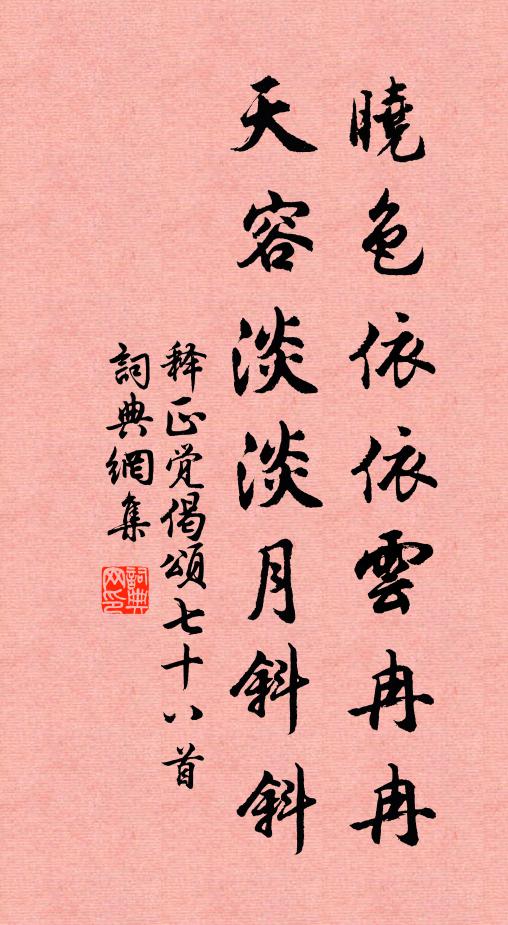 曉色依依雲冉冉
天容淡淡月斜斜
释正觉偈頌七十八首
詞典網集
詞典网印